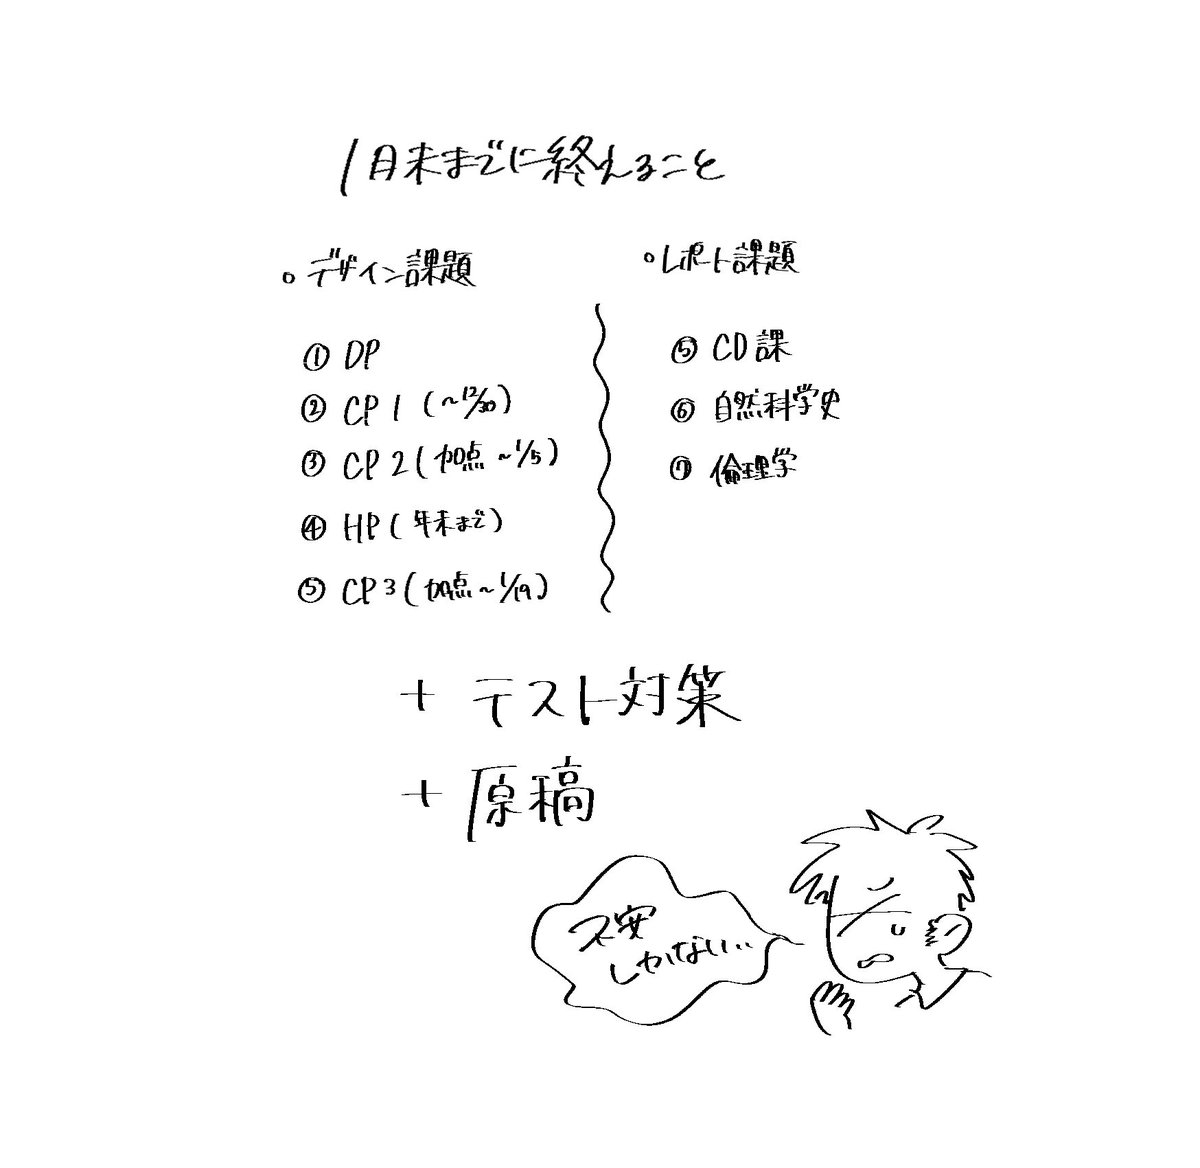 1月末までに終えること
○ デザイン課題
① DP
② CP1 (~12/30)
③ CP2 (加点 ~1/5)
④ HP (年末まで)
⑤ CP3 (加点 ~1/19)
○ レポート課題
⑤ CD課
⑥ 自然科学史
⑦ 倫理学
+ テスト対策
+ 原稿
不安
しかない…